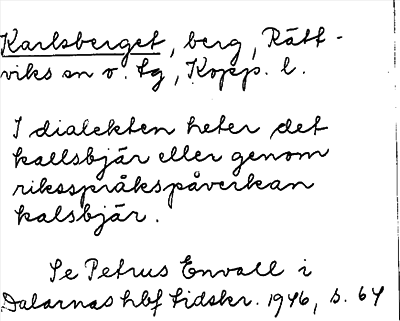 Karlsberget, berg, Rätt-
viks sn o. tg, Kopp. l.
I dialekten heter det
kallsbjär eller genom
riksspråkspåverkan
kalsbjär.
Se Petrus Envall i
Dalarnas hbf tidskr. 1946, s. 64